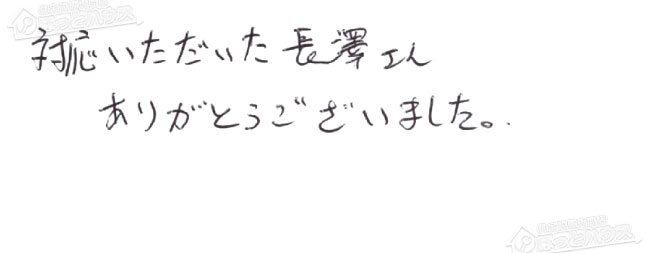 対応いただいた長澤さん
ありがとうございました。